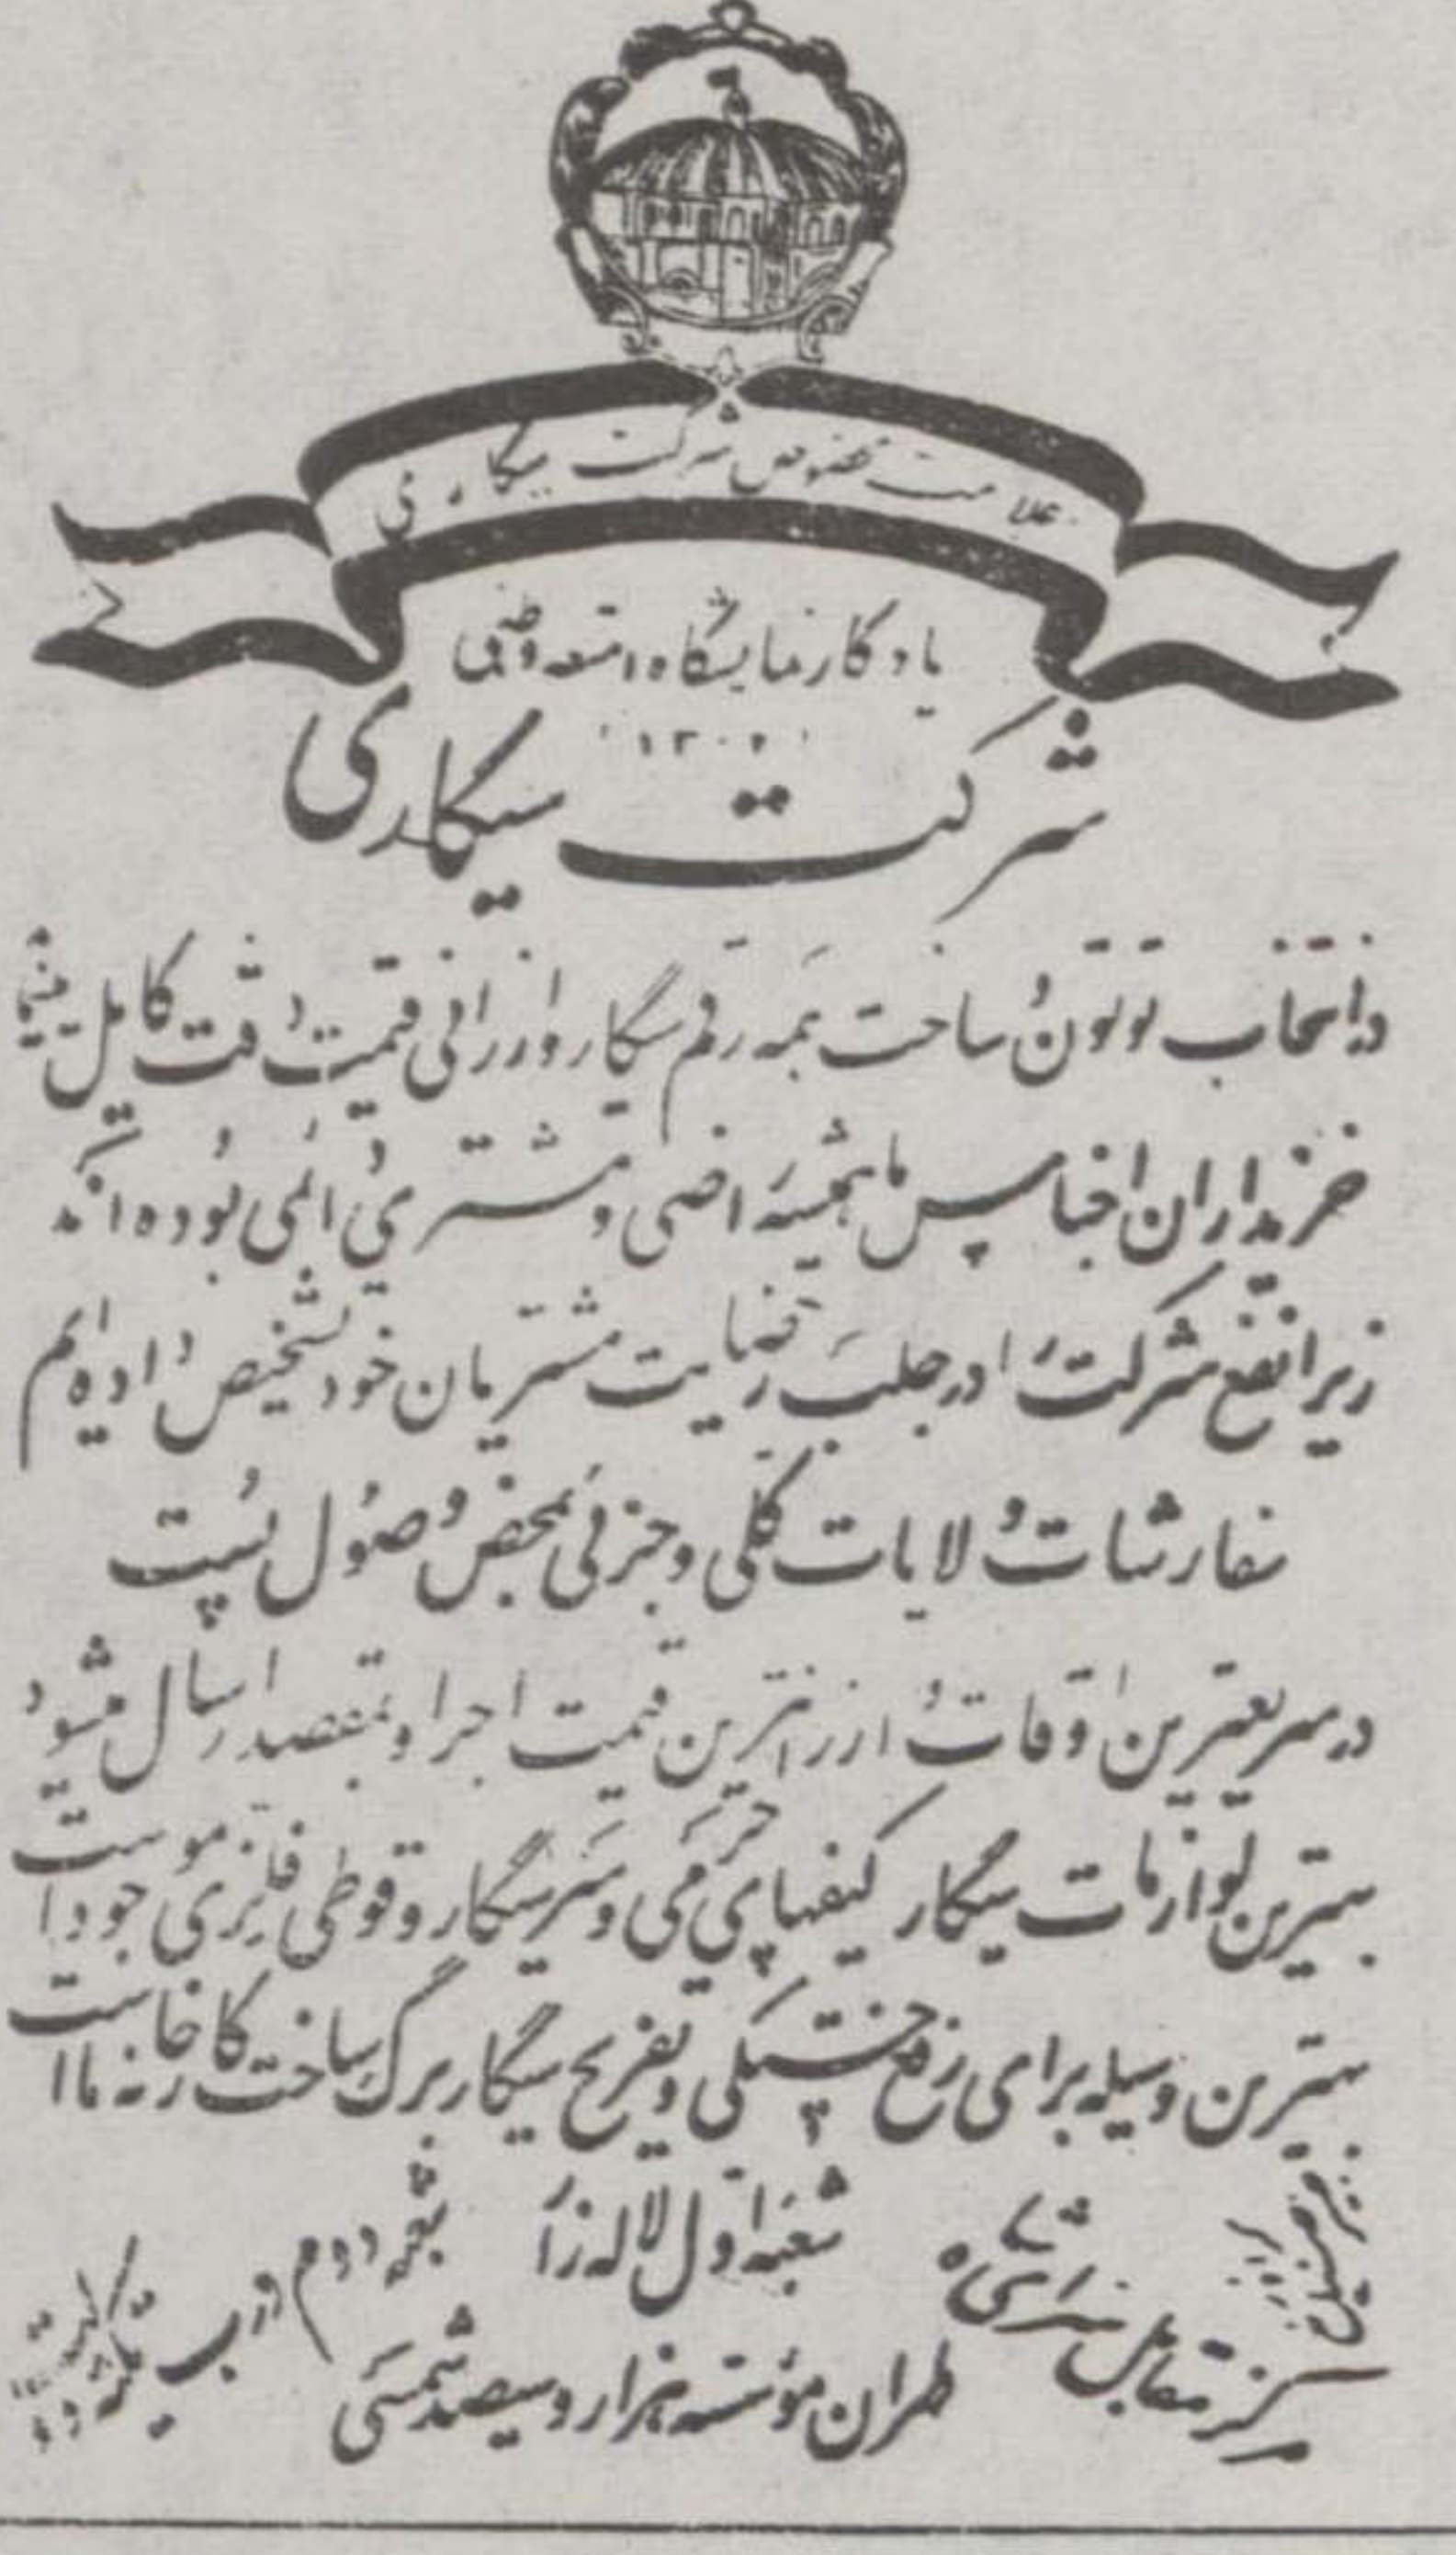 علامت مخصوص شرکت سیگاری
یادگار نمایشگاه امتعه وطنی
۱۳۰۲
شرکت سیگاری
در انتخاب توتون و ساخت همه رقم سیگار و ارزانی قیمت دقت کامل مینماید
خریداران اجناس ما همیشه راضی و مشتری دائمی بوده‌اند
زیرا نفع شرکت را در جلب رضایت مشتریان خود تشخیص داده‌ایم
سفارشات ولایات کلی و جزئی بمحض وصول پست
در سریعترین اوقات و ارزانترین قیمت اجرا و بمقصد ارسال میشود
بهترین لوازمات سیگار کیفهای چرمی و سر سیگار و قوطی فلزی موجود است
بهترین وسیله برای رفع خستگی و تفریح سیگار برگ ساخت کارخانه ما است
مرکز مقابل شعبه اول لاله‌زار شعبه دوم درب
طهران مؤسسه هزار و سیصد شمسی